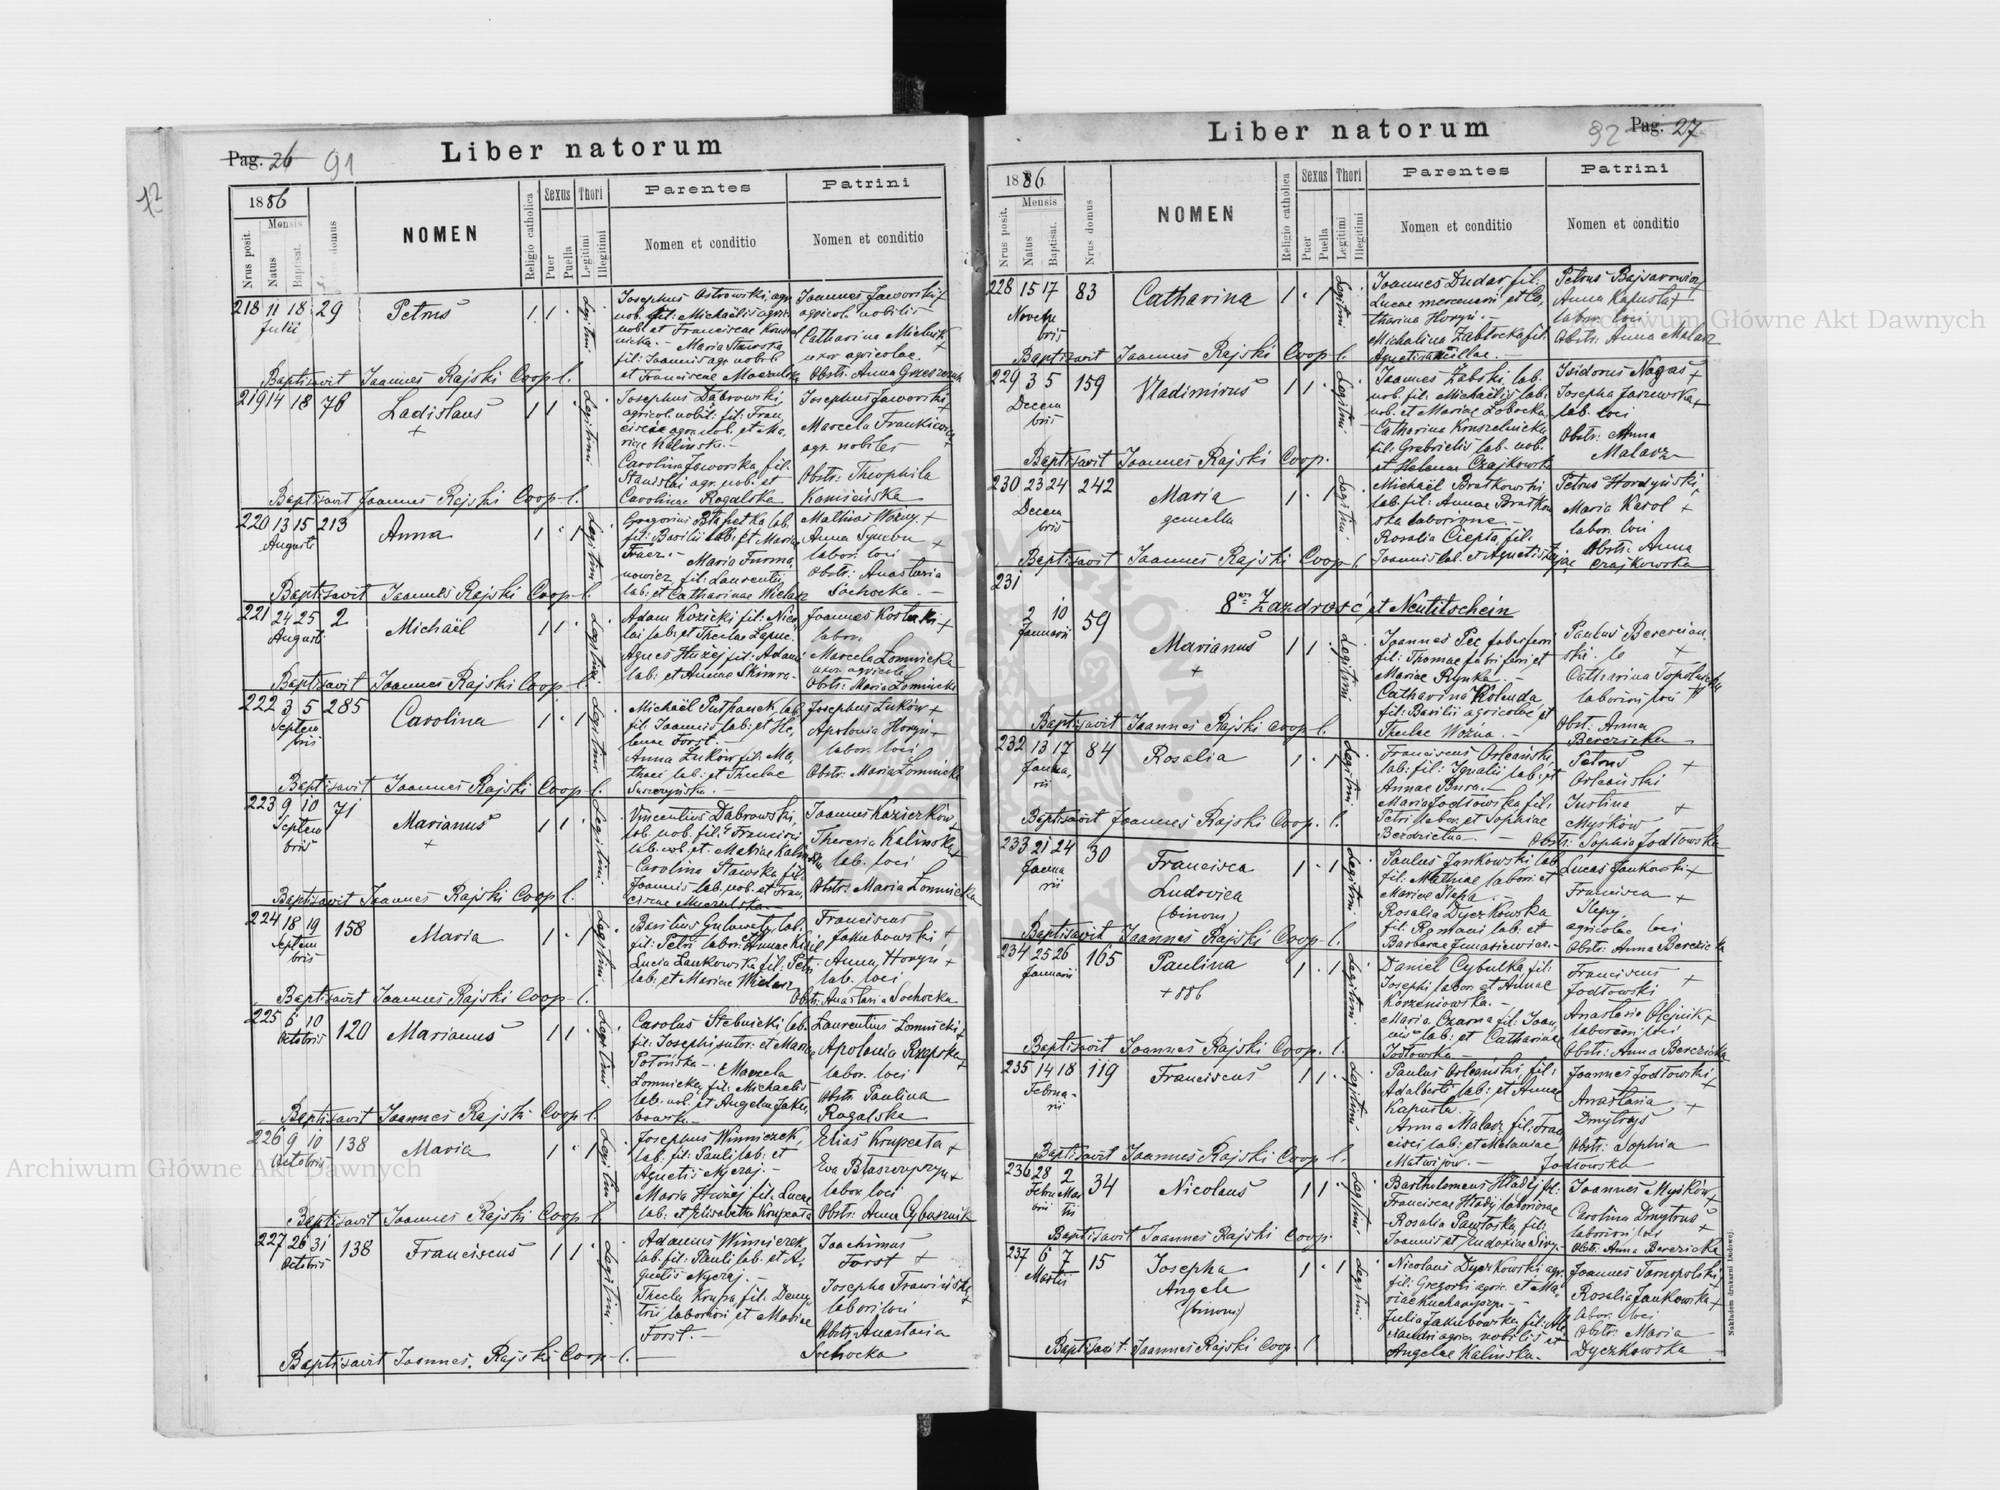 Pag. 26 91
Liber natorum
12
1886
Mensis
Nrus posit.
Natus
Baptisat.
domus
NOMEN
Religio catholica
Sexus
Puer
Puella
Thori
Legitimi
Illegitimi
Parentes
Nomen et conditio
Patrini
Nomen et conditio
218 11 18 29 Petrus 1 1
Julii
Legitimi
Josephus Ostrowski, agr.
nob. fil: Michaëlis agric.
nob. et Franciscae
Maria Stawska
fil: Joannis agr. nobil.
et Franciscae
Joannes Jaworski +
agricol. nobilis
Catharina Mielnik +
uxor agricolae.
Obstr: Anna
Baptisavit Joannes Rajski Coop. l.
219 14 18 76 Ladislaus 1 1
+
Legitimi
Josephus Dąbrowski,
agricol. nobil. fil: Fran
cisci agr. nob. et Ma,
riae Kalinska.-
Carolina Jaworska, fil.
Stanislai agr. nob. et
Carolinae Rogalska
Josephus Jaworski +
Marcela Frankiewicz
agr. nobiles
Obstr: Theophila
Kamieńska
Baptisavit Joannes Rajski Coop. l.
220 13 15 213 Anna 1 1
Augusti
Legitimi
Gregorius lab.
fil: Basilii lab: et Maria
Maria Furma,
nowicz, fil: Laurentii
lab: et Catharinae
Mathias Wozny +
Anna +
labor. loci
Obstr: Anastasia
Sochocka.-
Baptisavit Joannes Rajski Coop. l.
221 24 25 2 Michaël 1 1
Augusti
Legitimi
Adam Kozicki fil: Nico
lai lab: et Theclae
Agnes fil: Adami
lab: et Annae
Joannes +
labor.
Marcela Łomnicka
uxor agricolae
Obstr: Maria Łomnicka
Baptisavit Joannes Rajski Coop. l.
222 3 5 285 Carolina 1 1
Septem
bris
Legitimi
Michaël lab.
fil: Joannis lab: et He,
lenae Forst.-
Anna Łukow fil: Ma,
thaei lab: et Theclae
Josephus Łuków +
Apolonia Horyn +
labor. loci
Obstr: Maria Łomnicka
Baptisavit Joannes Rajski Coop. l.
223 9 10 71 Marianus 1 1
Septem
bris
+
Legitimi
Vincentius Dąbrowski,
lab. nob. fil: Francisci
lab. nob. et. Mariae Kalinska
- Carolina Stawska fil:
Joannis lab. nob. et Fran,
ciscae
Joannes
Theresia Kalinska +
lab. loci
Obstr: Maria Łomnicka
Baptisavit Joannes Rajski Coop l.
224 18 19 158 Maria 1 1
Septem
bris
Legitimi
Basilius lab.
fil: Petri labor: et Annae
Lucia Lankowska fil: Petri
lab: et Mariae
Franciscus
Jakubowski +
Anna Horyn +
lab. loci
Obstr: Anastasia Sochocka
Baptisavit Joannes Rajski Coop l.
225 6 10 120 Marianus 1 1
Octobris
Legitimi
Carolus Stebnicki, lab.
fil: Josephi sutor: et Maria
Marcela
Łomnicka, fil: Michaelis
lab. nob. et Angelae Jaku,
bowska.-
Laurentius Łomnicki +
Apolonia Rzepska +
labor. loci
Obstr: Paulina
Rogalska
Baptisavit Joannes Rajski Coop l.
226 9 10 138 Maria 1 1
Octobris
Legitimi
Josephus Winniczek,
lab: fil: Pauli lab: et
Agnetis Nyczaj.-
Maria fil: Lucae
lab: et Elisabetha
Elias +
Eva +
labor. loci
Obstr: Anna
Baptisavit Joannes Rajski Coop l.
227 26 31 138 Franciscus 1 1
Octobris
Legitimi
Adamus Winniczek,
lab: fil: Pauli lab: et A,
gnetis Nyczaj.-
Thecla Krupa fil: Deme
trii laborion et Mariae
Forst.-
Joachimus
Forst +
Josepha
labor. loci
Obstr: Anastasia
Sochocka
Baptisavit Joannes Rajski Coop l.
Liber natorum
92 Pag. 27
1886
Mensis
Nrus posit.
Natus
Baptisat.
Nrus domus
NOMEN
Religio catholica
Sexus
Puer
Puella
Thori
Legitimi
Illegitimi
Parentes
Nomen et conditio
Patrini
Nomen et conditio
228 15 17 83 Catharina 1 1
Novem
bris
Legitimi
Joannes Dudar fil:
Lucae mercenarii et Ca,
tharina Horyn.-
Michalina Zabłocka fil:
Agnetis ancillae.-
Petrus
Anna Kapusta +
labor. loci
Obstr: Anna Malarz
Baptisavit Joannes Rajski Coop l.
229 3 5 159 Vladimirus 1 1
Decem
bris
Legitimi
Joannes Zabski, lab.
nob. fil: Michaëlis lab:
nob. et Mariae
Catharina Kruszelnicka
fil: Grabrielis lab. nob.
et Helenae Czajkowska
Isidorus Nagas +
Josepha Jaszewska +
lab. loci
Obstr: Anna
Malarz
Baptisavit Joannes Rajski Coop.
230 23 24 242 Maria 1 1
Decem
bris
gemella
Legitimi
Michaël Bratkowski
lab. fil: Annae Bratkow
ska
Rosalia Ciepta, fil:
Joannis lab. et Agnetis
Petrus Hordyński,
Maria Karol +
labor. loci
Obstr: Anna
Czajkowska
Baptisavit Joannes Rajski Coop l.
231
8vo Zazdrość et Neutitschein
2 10 59 Marianus 1 1
Januarii
+
Legitimi
Joannes Pec faber ferri
fil: Thomae fabri ferri et
Mariae Rynka.-
Catharina Kolenda
fil: Basilii agricolae et
Theclae Wozna.-
Paulus
+
Catharina
laborioni loci
Obst: Anna
Berezicka
Baptisavit Joannes Rajski Coop l.
232 13 17 84 Rosalia 1 1
Janua,
rii
Legitimi
Franciscus Orleański,
lab: fil: Ignatii lab: et
Annae Bura.-
Maria Jodłowska, fil:
Petri labor. et Sophiae
Petrus +
Orleański
Justina +
Myśków
Obstr: Sophia Jodłowska
Baptisavit Joannes Rajski Coop. l.
233 21 24 30 Francisca 1 1
Janua
rii
Ludovica
(binom)
Legitimi
Paulus Jankowski lab.
fil: Mathiae labor: et
Mariae Slepa.-
Rosalia Dyczkowska
fil: Romani lab: et
Barbarae
Lucas Jankowski +
Francisca +
Slepy,
agricolae loci
Obstr: Anna Berezicka
Baptisavit Joannes Rajski Coop l.
234 25 26 165 Paulina 1 1
Januarii
+ 886
Legitimi
Daniel Cybulka, fil:
Josephi labor. et Annae
Korzeniowska.-
Maria Czarna fil: Joan,
nis lab: et Catharinae
Jodłowska.-
Franciscus +
Jodłowski
Anastasia Olejnik +
laborioni loci
Obstr: Anna Berezicka
Baptisavit Joannes Rajski Coop. l.
235 14 18 119 Franciscus 1 1
Februa-
rii
Legitimi
Paulus Orleański, fil:
Adalberti lab: et Annae
Kapusta.-
Anna Malarz, fil: Fran
cisci lab: et Melaniae
Matwijów.-
Joannes Jodłowski +
Anastasia +
Dmytrys
Obstr: Sophia
Jodłowska
Baptisavit Joannes Rajski Coop l.
236 28 2 34 Nicolaus 1 1
Febru Mar
arii tii
Legitimi
Bartholomeus Hładij fil:
Franciscae Hładij laboriosae
- Rosalia fil:
Joannis et Eudoxiae
Joannes Myśków +
Carolina Dmytrus +
laborioni loci
Obstr: Anna Berezicka
Baptisavit Joannes Rajski Coop.
237 6 7 15 Josepha 1 1
Martii
Angela
(binom)
Legitimi
Nicolaus Dyczkowski agr.
fil: Gregorii agric. et Ma,
riae
Julia Jakubowska, fil: Ale
xandri agric. nobilis et
Angelae Kalinska.-
Joannes Tarnopolski
Rosalia Jankowska +
labor. loci
Obstr: Maria
Dyczkowska
Baptisavit. Joannes Rajski Coop. l
Nakładem drukarni Ludowej.
Archiwum Główne Akt Dawnych
Archiwum Główne Akt Dawnych